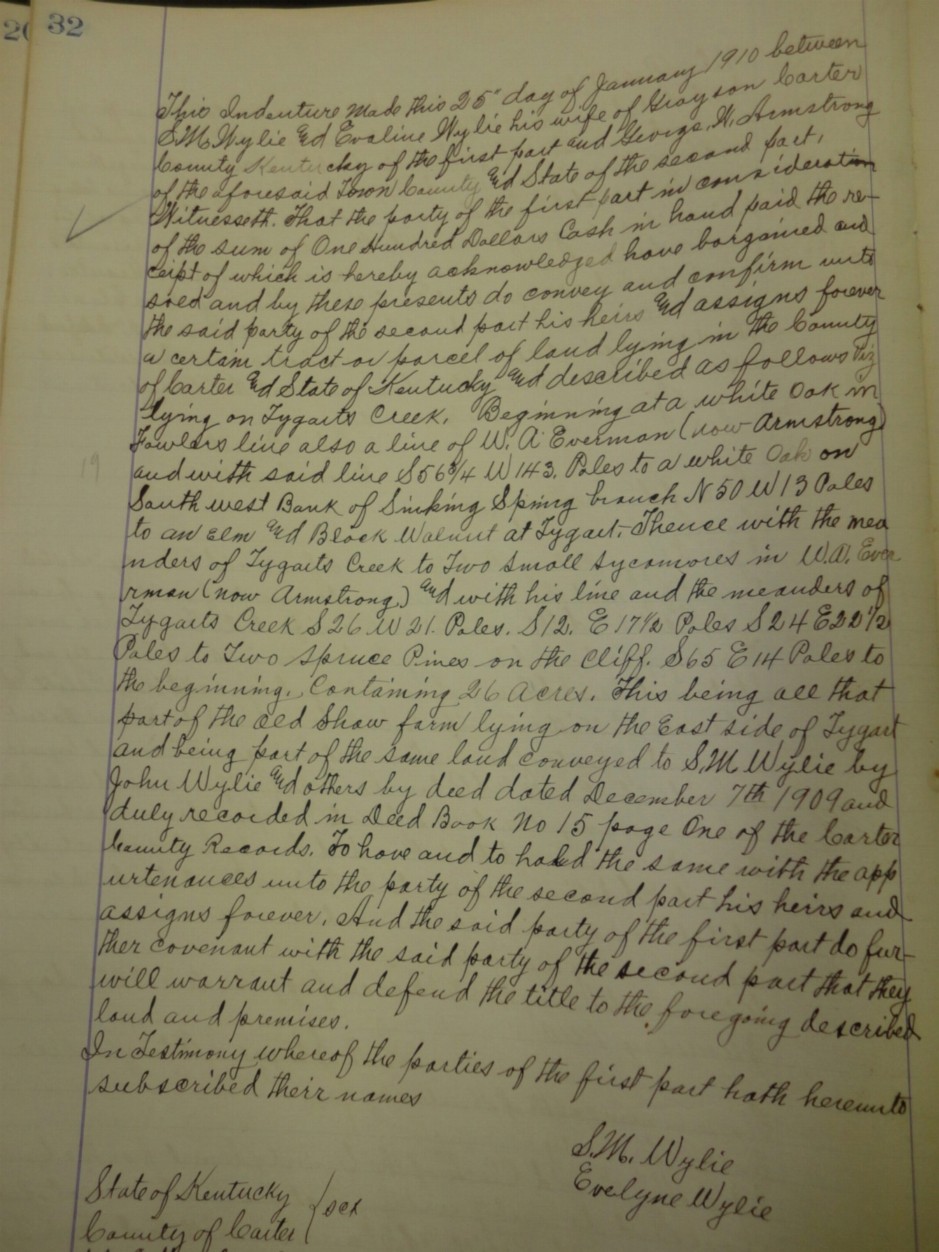 20
32
This Indenture Made this 25" day of January 1910 between
S.M. Wylie and Evaline Wylie his wife of Grayson Carter
County Kentucky of the first part and George. W. Armstrong
of the aforesaid Town County and State of the second part,
Witnesseth. That the party of the first part in consideration
of the sum of One Hundred Dollars Cash in hand paid the re-
ceipt of which is hereby acknowledged have bargained and
soed and by these presents do convey and confirm unto
the said party of the second part his heirs and assigns forever
a certain tract or parcel of land lying in the County
of Carter and State of Kentucky and described as follows Viz
lying on Tygarts Creek. Beginning at a white Oak in
Fowlers line also a line of W. A. Everman (now Armstrong)
19
and with said line S 56 3/4 W 143. Poles to a white Oak on
South west Bank of Sinking Spring branch N 50 W 13 Poles
to an Elm and Black Walnut at Tygart. Thence with the mea
nders of Tygarts Creek to Two small sycamores in W.A. Ever
rman (now Armstrong.) and with his line and the meanders of
Tygarts Creek S 26 W 21. Poles. S 12. E 17 1/2 Poles S 24 E 22 1/2
Poles to Two Spruce Pines on the Cliff. S 65 E 14 Poles to
the beginning. Containing 26 Acres. This being all that
part of the old Shaw farm lying on the East side of Tygart
and being part of the same land conveyed to S.M. Wylie by
John Wylie and others by deed dated December 7th 1909 and
duly recorded in Deed Book No 15 page One of the Carter
County Records. To have and to hold the same with the app
urtenances unto the party of the second part his heirs and
assigns forever. And the said party of the first part do fur-
ther covenant with the said party of the second part that they
will warrant and defend the title to the foregoing described
land and premises.
In Testimony whereof the parties of the first part hath hereunto
subscribed their names
S.M. Wylie
Evelyne Wylie
State of Kentucky
County of Carter } sct